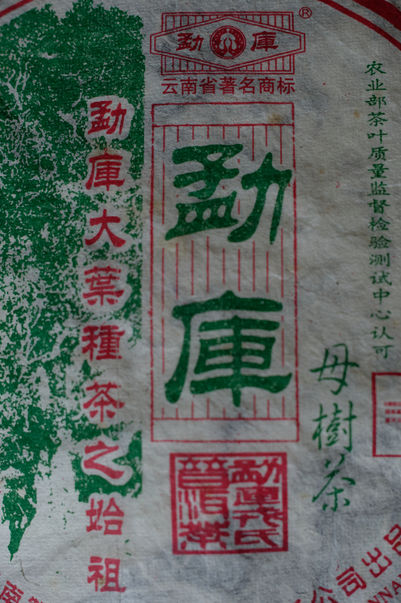 勐 庫 ®
云南省著名商标
农业部茶叶质量监督检验测试中心认可
勐庫
母樹茶
勐庫大葉種茶之始祖
勐庫戎氏
普洱茶
公司出品
南